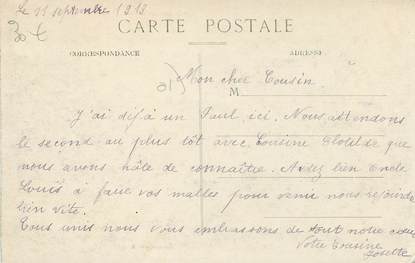 Le 11 septembre 1918
30 €
CARTE POSTALE
CORRESPONDANCE
ADRESSE
Mon cher Cousin.
M
J'ai déjà un Paul ici. Nous attendons
le second au plus tôt avec Cousine Clotilde que
nous avons hâte de connaître. Aidez bien Oncle
Louis à faire vos malles pour venir nous rejoindre
bien vite.
Tous unis nous vous embrassons de tout notre cœur
Votre Cousine
Josette